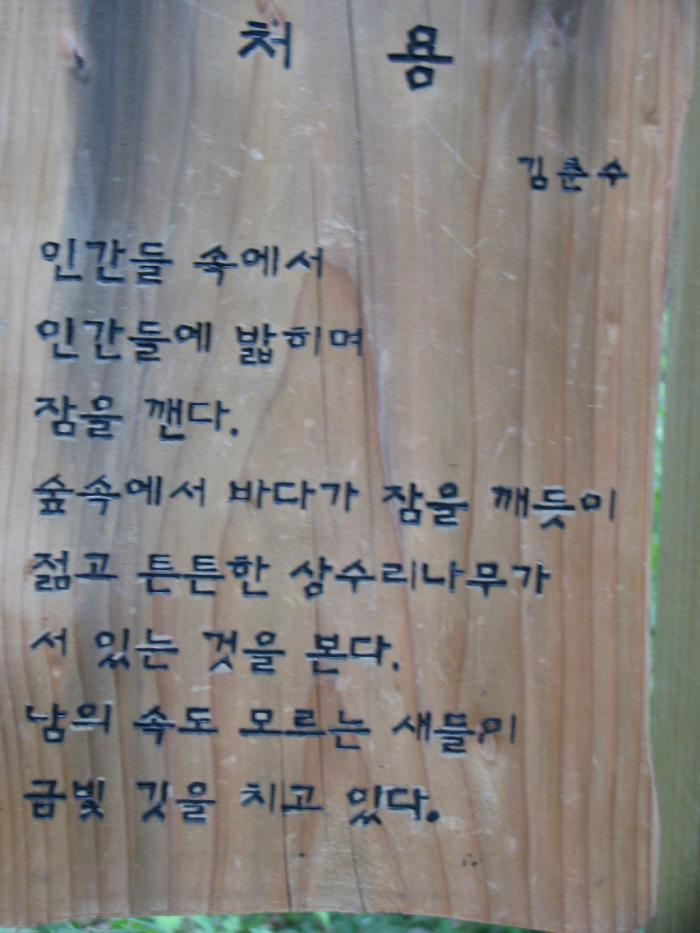 처 용
김춘수
인간들 속에서
인간들에 밟히며
잠을 깬다.
숲속에서 바다가 잠을 깨듯이
젊고 튼튼한 상수리나무가
서 있는 것을 본다.
남의 속도 모르는 새들이
금빛 깃을 치고 있다.